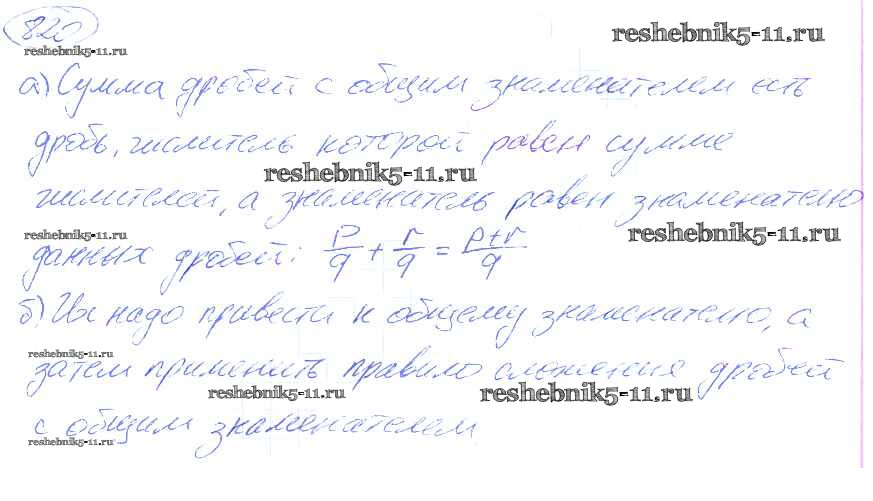 820
reshebnik5-11.ru
reshebnik5-11.ru
а) Сумма дробей с общим знаменателем есть
дробь, числитель которой равен сумме
reshebnik5-11.ru
числителей, а знаменатель равен знаменателю
reshebnik5-11.ru
reshebnik5-11.ru
данных дробей: p/q + r/q = p+r/q
б) Их надо привести к общему знаменателю, а
reshebnik5-11.ru
затем применить правило сложения дробей
reshebnik5-11.ru
reshebnik5-11.ru
с общим знаменателем
reshebnik5-11.ru